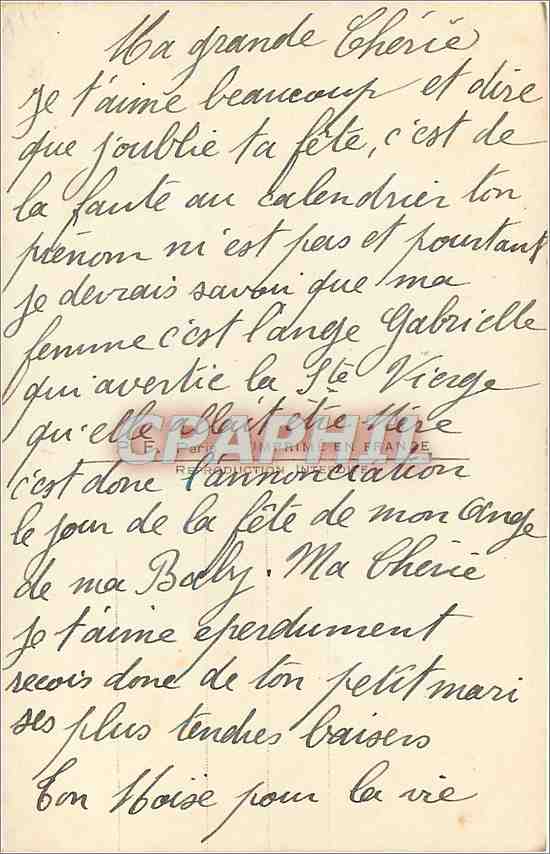 Ma grande Chérie
Je t'aime beaucoup et dire
que j'oublie ta fête, c'est de
la faute au calendrier ton
prénom ni est pas et pourtant
je devrais savoir que ma
femme c'est l'ange Gabrielle
qui avertie la Ste Vierge
qu'elle allait être Mère
CPARAMA
IMPRIMÉ EN FRANCE
REPRODUCTION INTERDITE
c'est donc l'annonciation
le jour de la fête de mon Ange
de ma Baby. Ma Chérie
je t'aime eperdument
recois donc de ton petit mari
ses plus tendres baisers
Ton Moïse pour la vie